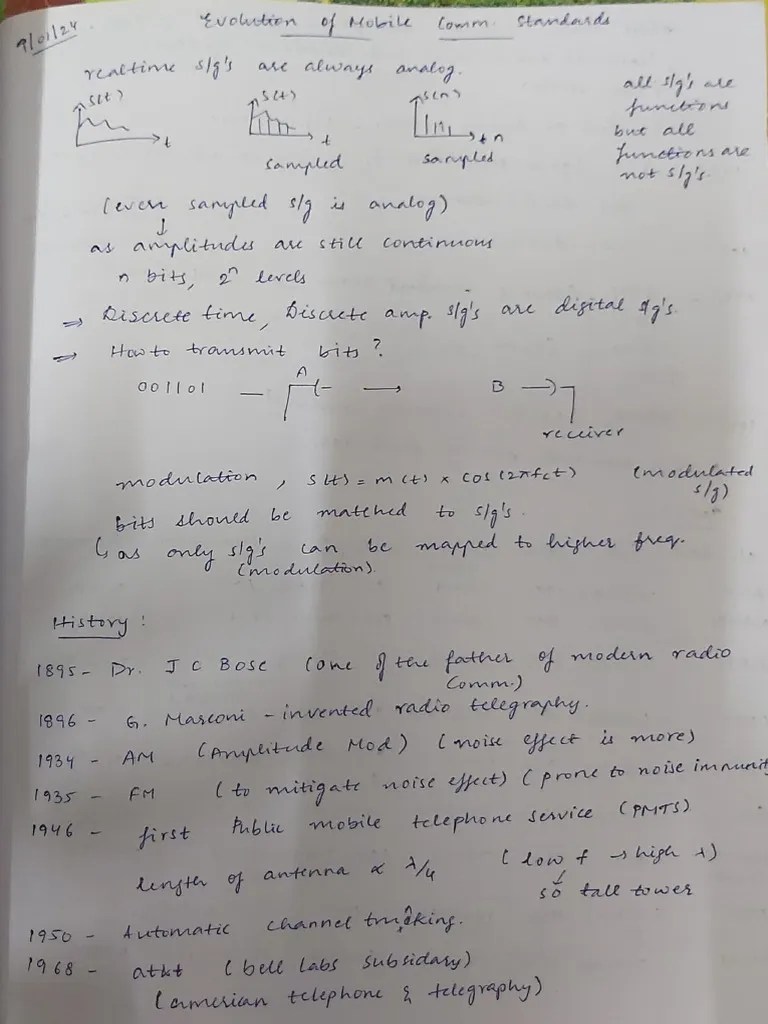 9/01/24
Evolution of Mobile Comm. Standards
realtime s/g's are always analog.
s(t)
t
s(t)
t
sampled
s(n)
t n
sampled
all s/g's are
functions
but all
functions are
not s/g's.
(even sampled s/g is analog)
↓
as amplitudes are still continuous
n bits, 2^n levels
⇒ Discrete time, Discrete amp. s/g's are digital s/g's.
⇒ How to transmit bits?
001101 — A → B
receiver
modulation, s(t) = m(t) x cos(2πfct) (modulated
s/g)
bits should be matched to s/g's.
↳ as only s/g's can be mapped to higher freq.
(modulation).
History :
1895 - Dr. J C Bose (one of the father of modern radio
Comm.)
1896 - G. Marconi - invented radio telegraphy.
1934 - AM (Amplitude Mod) (noise effect is more)
1935 - FM (to mitigate noise effect) (prone to noise immunit
1946 - first Public mobile telephone service (PMTS)
length of antenna ∝ λ/4 (low f → high λ)
↓
so tall tower
1950 - Automatic channel trunking.
1968 - at&t (bell labs subsidary)
(amerian telephone & telegraphy)